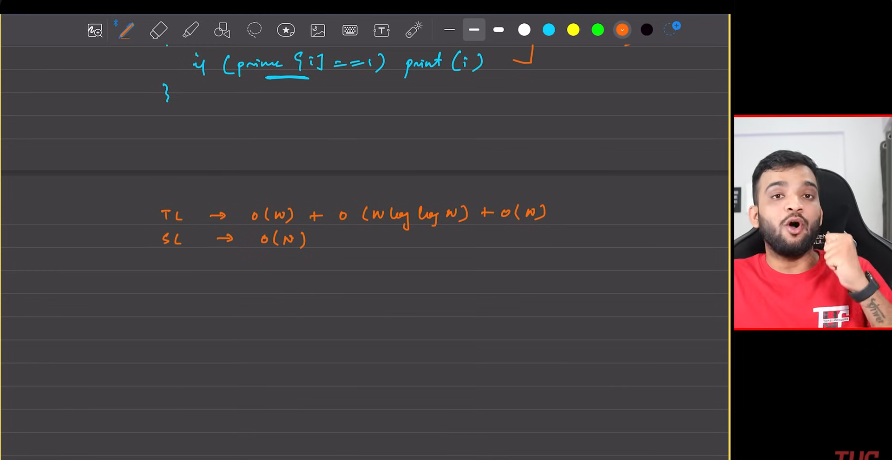 if (prime [i] == 1) print (i)
}
TC → O(N) + O (N log log N) + O(N)
SC → O(N)